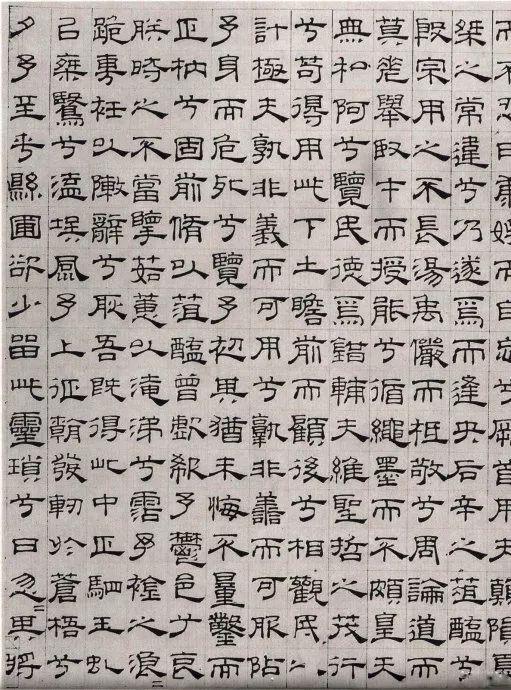 而不忍日康娛而自忘兮厥首用夫顛隕夏
桀之常違兮乃遂焉而逢央后辛之菹醢兮
殷宗用之不長湯禹儼而祗敬兮周論道而
莫差舉臤才而授能兮循繩墨而不頗皇天
無私阿兮覽民德焉錯輔夫維聖哲之茂行
兮苟得用此下土瞻前而顧後兮相觀民之
計極夫孰非義而可用兮孰非善而可服阽
予身而危死兮覽予初其猶未悔不量鑿而
正枘兮固前脩以菹醢曾歔欷予鬱邑兮哀
朕時之不當擥茹蕙以淹涕兮霑予襟之浪〻
跪尃衽以陳辭兮耿吾既得此中正駟玉虬
以椉鷖兮溘埃風予上征朝發軔於蒼梧兮
夕予至乎縣圃欲少留此靈瑣兮日忽〻其將